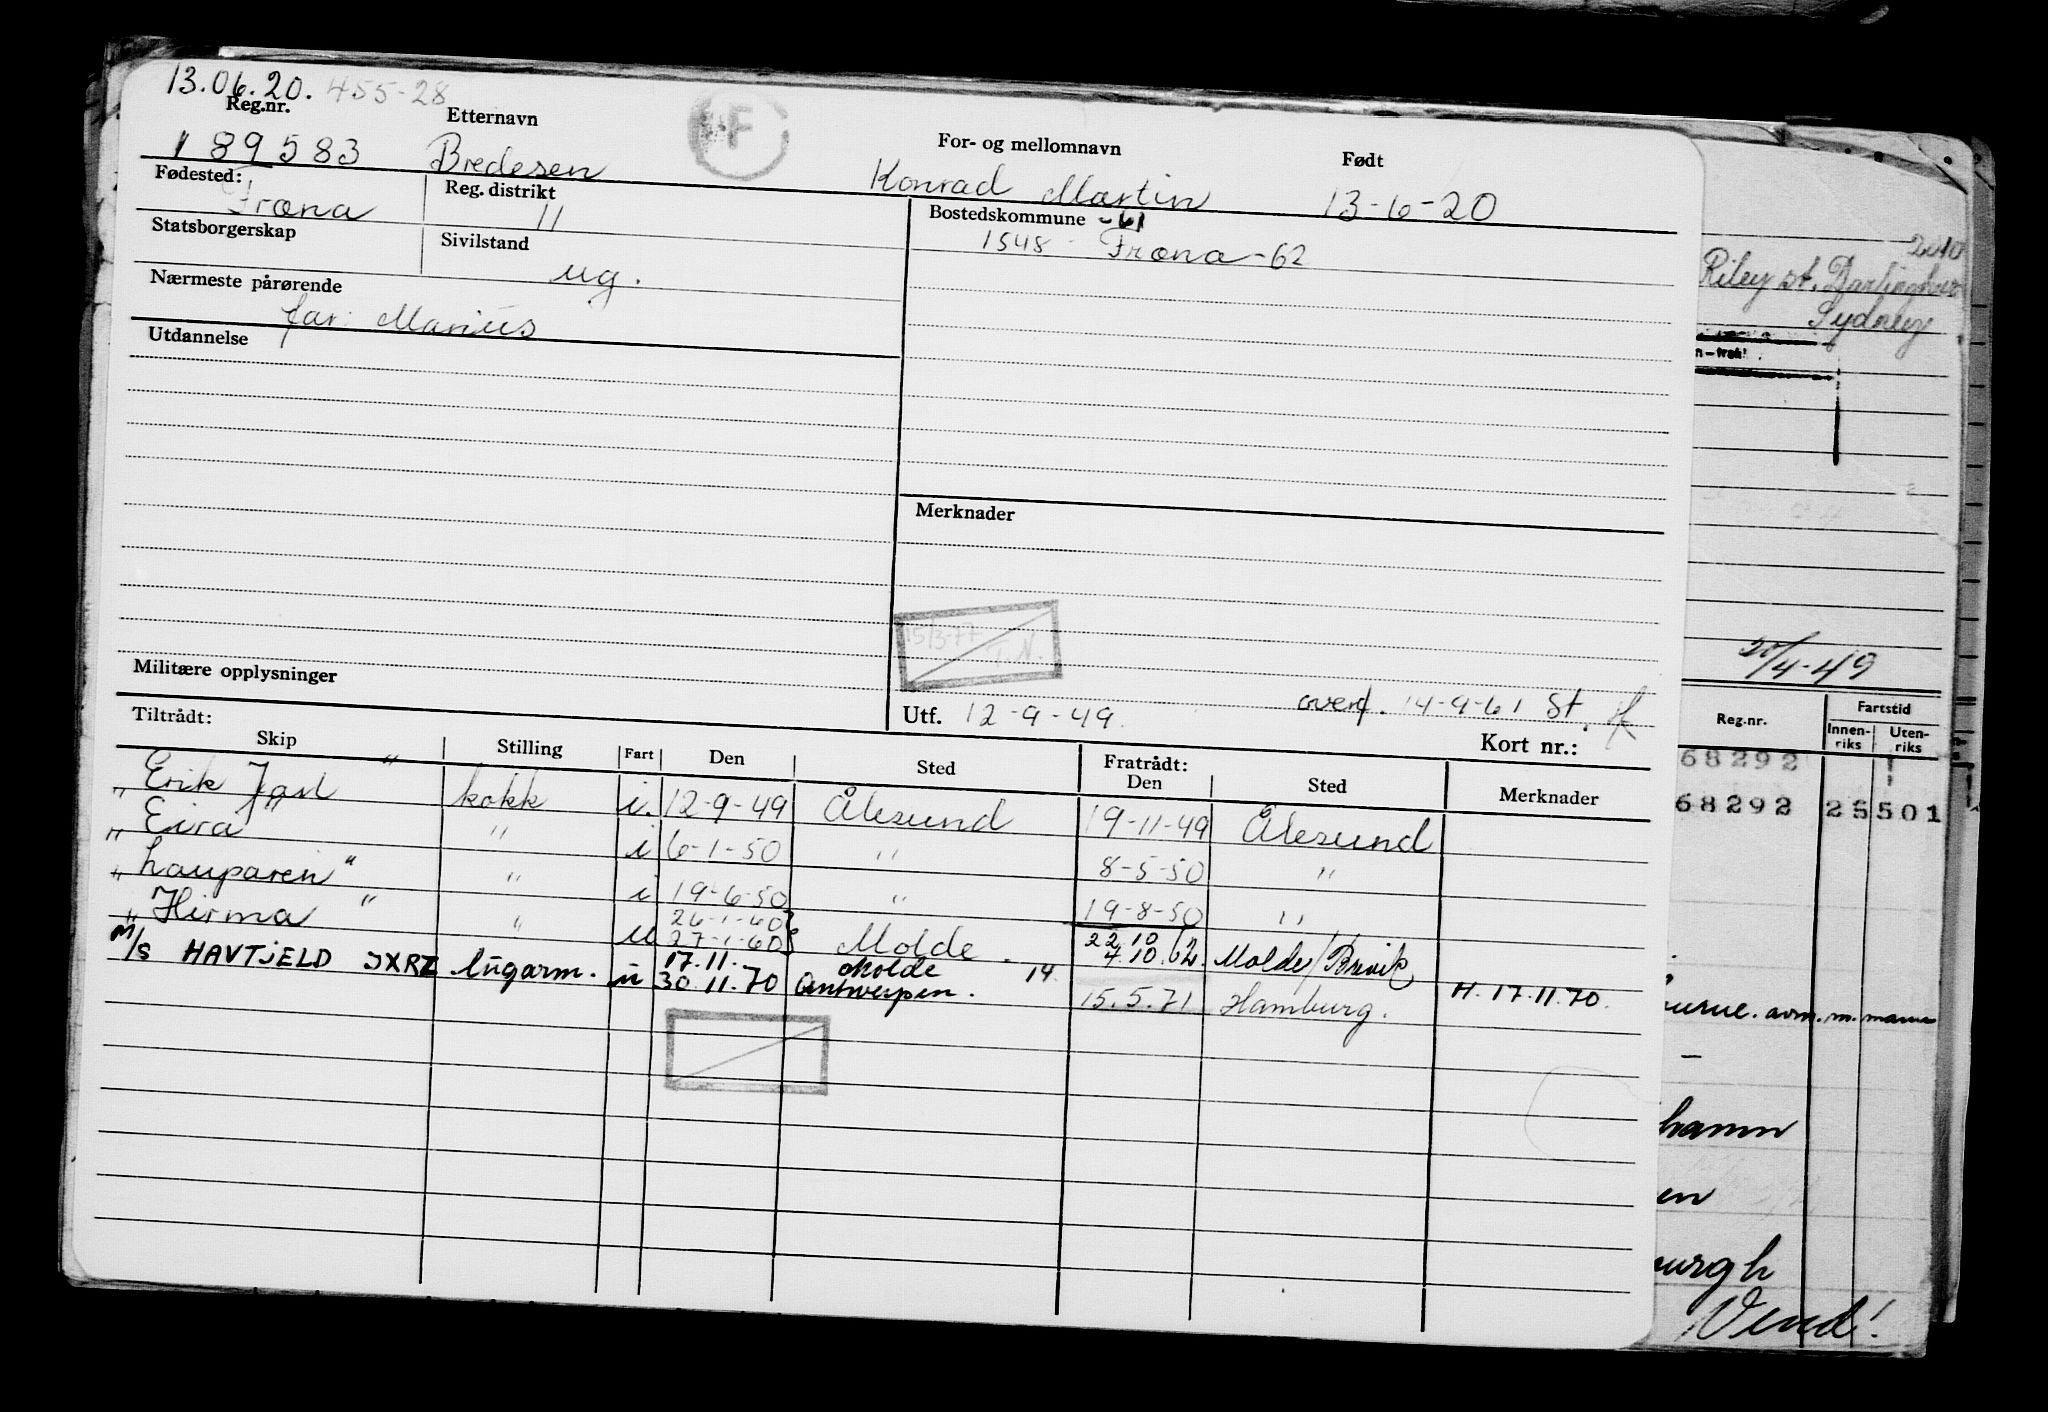 13.06.20. 455-28
Reg.nr. Etternavn F For- og mellomnavn Født
189583 Bredesen Konrad Martin 13-6-20
Fødested: Fræna Reg. distrikt 11 Bostedskommune -61
1548 - Fræna -62
Statsborgerskap Sivilstand ug.
Nærmeste pårørende far: Marius
Utdannelse
Merknader
15/3-77 T.N.
Militære opplysninger
Utf. 12-9-49. overf. 14-9-61 St.
Kort nr.:
Tiltrådt: Fratrådt:
Skip Stilling Fart Den Sted Den Sted Merknader
" Erik Jarl " kokk i. 12-9-49 Ålesund 19-11-49 Ålesund
" Eira " " i 6-1-50 " 8-5-50 "
" Lauparen " " i 19-6-50 " 19-8-50 "
" Hirma " " u 26-1-60 27-1-60 Molde 22.10 4.10.62 Molde/Brevik
M/S HAVTJELD JXRZ lugarm. u 17.11. 30.11.70 Molde Antwerpen. 14 15.5.71 Hamburg. H. 17.11.70.
2010
Riley st. Darlinghur
Sydney
20/4-49
Reg.nr. Fartstid
Innen-riks Uten-riks
68292
68292 25 501
avm. m.
hamn
en
urgh
Vend!